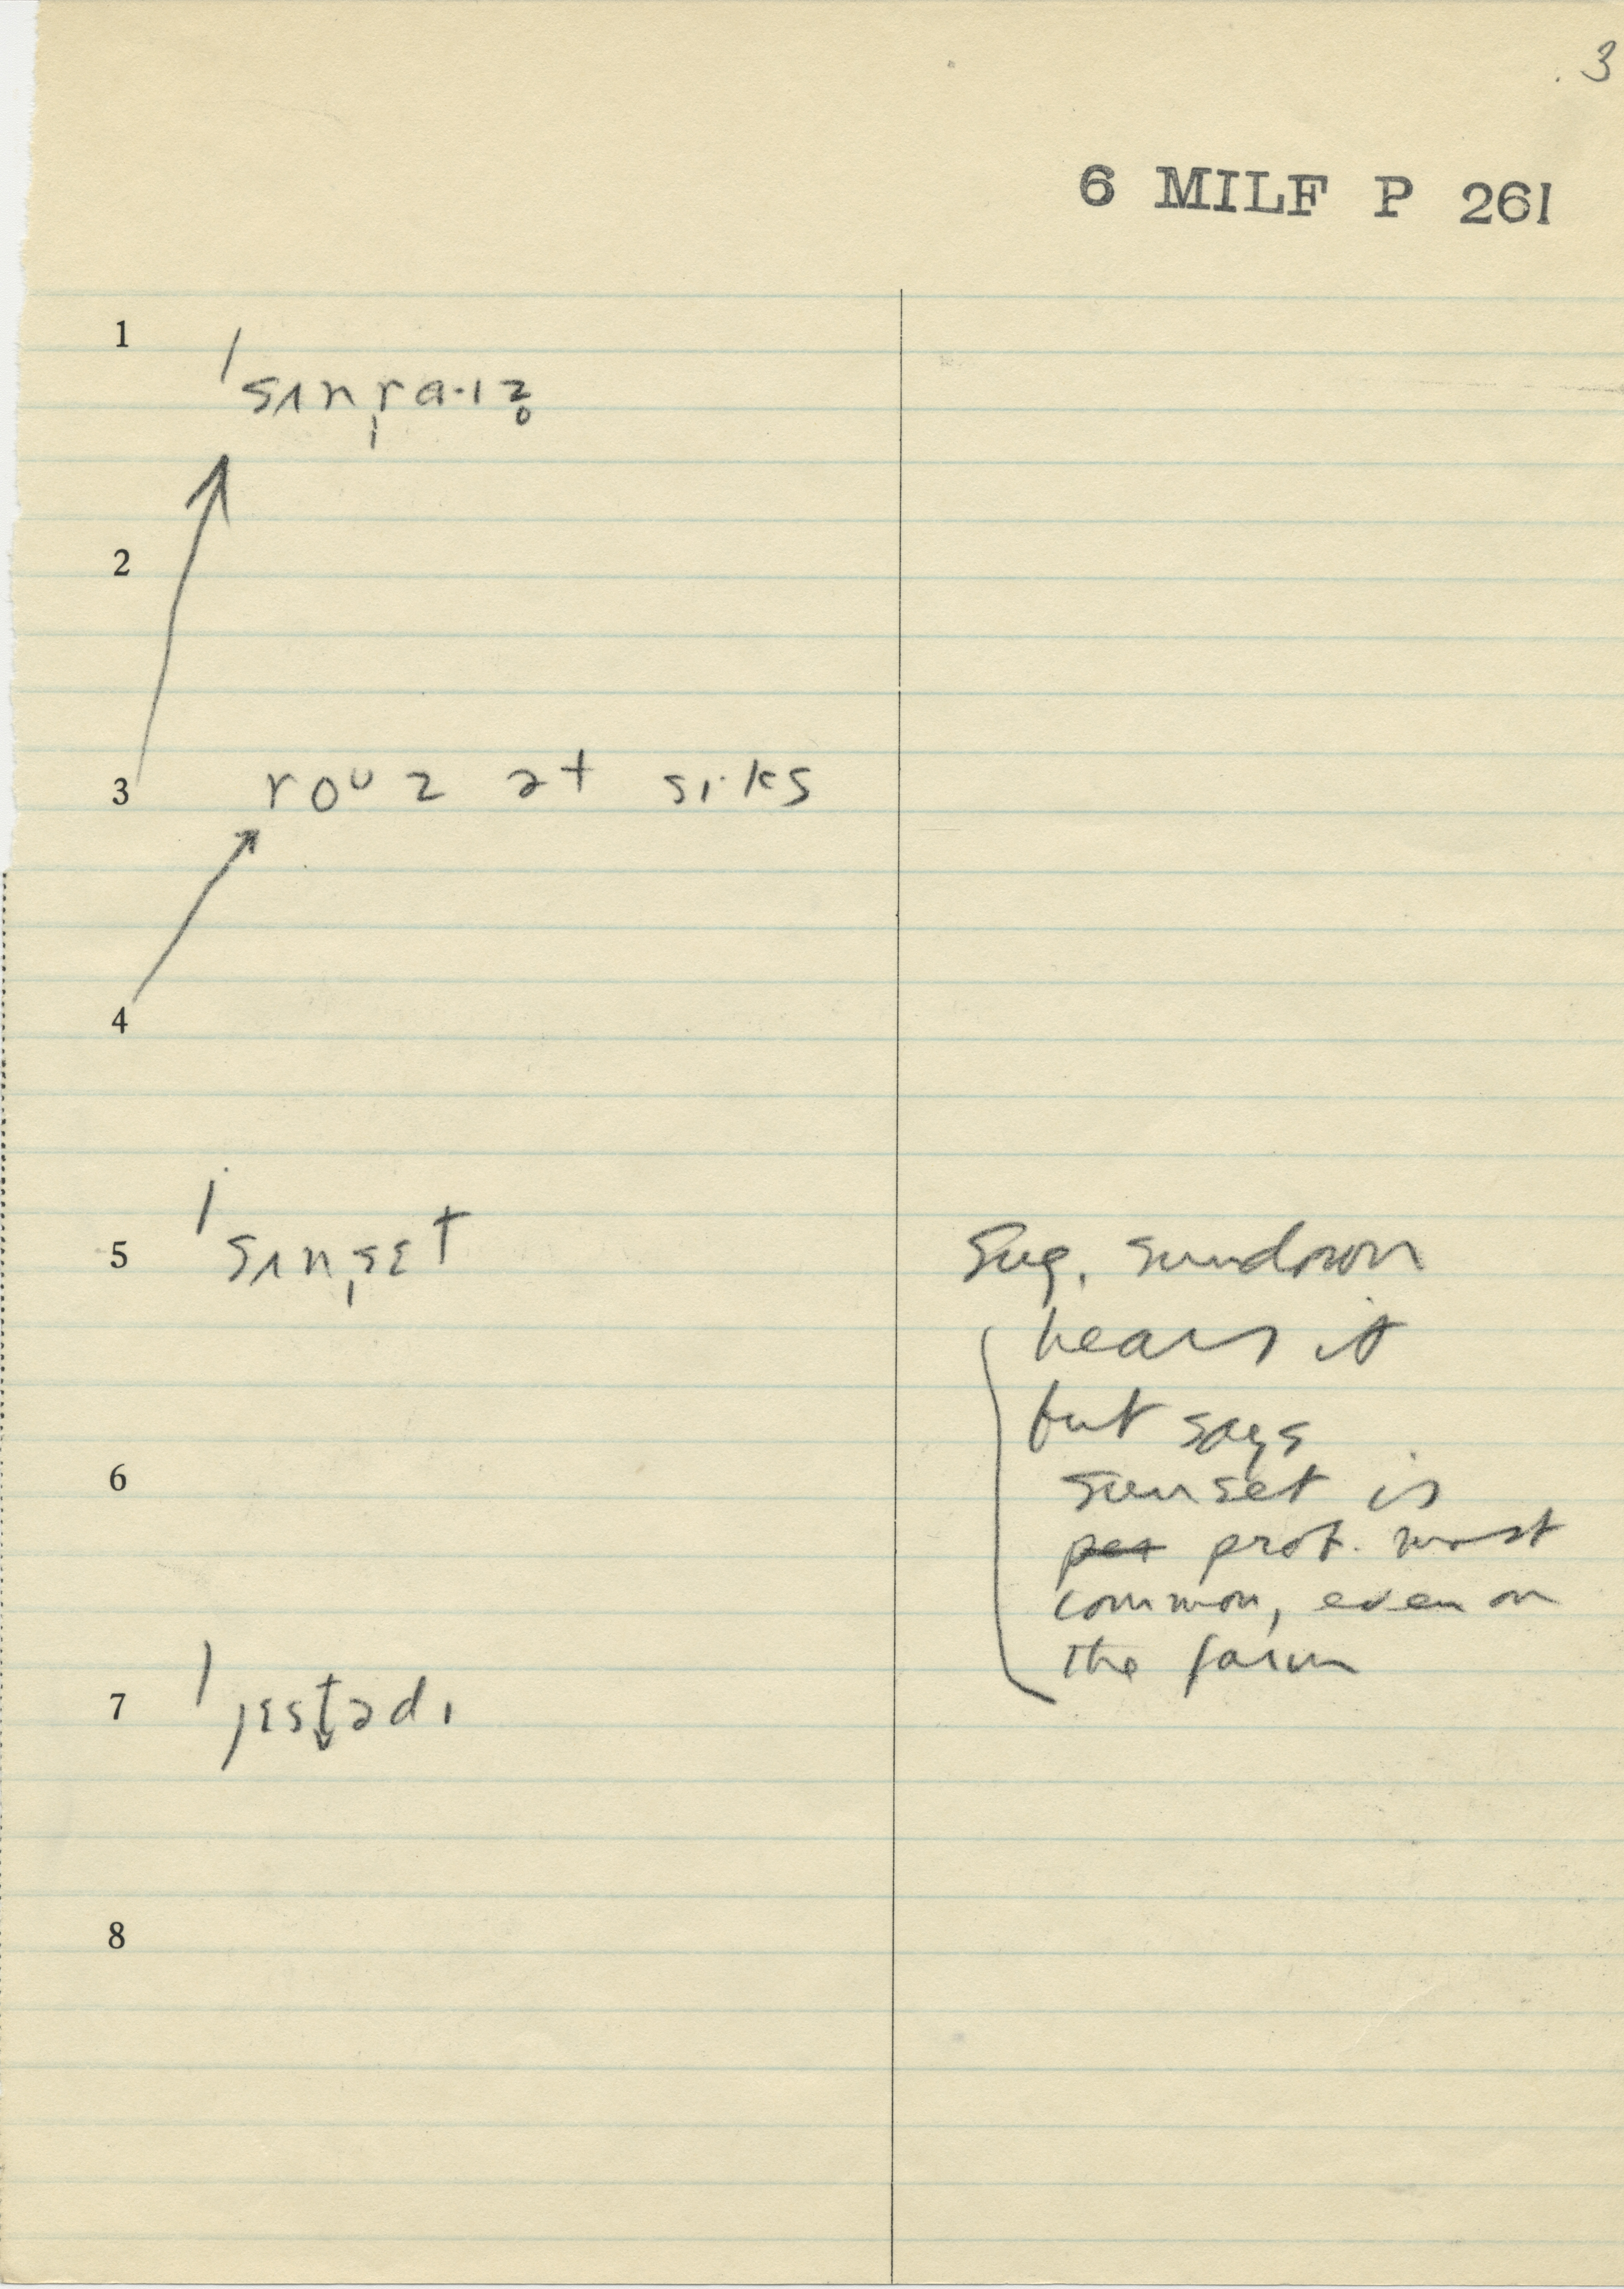 3
6 MILF P 261
1 ˈsʌnˌra·ɪz̥
2
3 roᴜz ət sɪ·ks
4
5 ˈsʌnˌsɛt Sug. sundown
hears it
but says
6 sunset is
pet prob. most
common, even on
the farm
7 ˈjɛst̬ədɪ
8